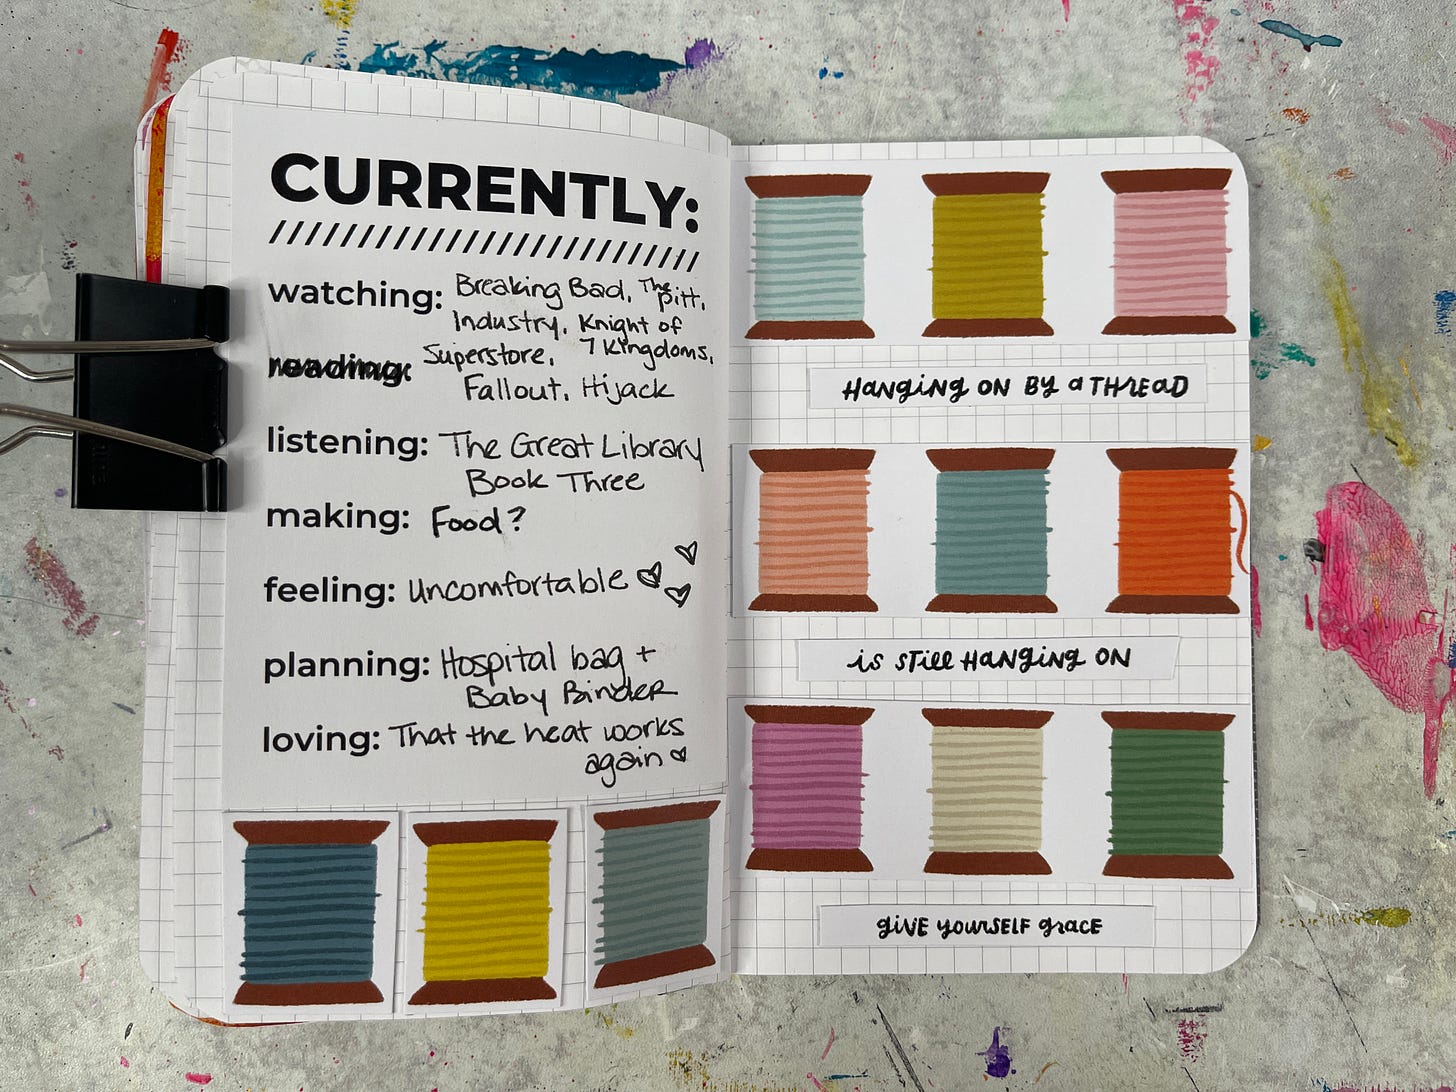 CURRENTLY:
watching: Breaking Bad, The Pitt,
Industry, Knight of
reading: Superstore, 7 Kingdoms,
Fallout, Hijack
listening: The Great Library
Book Three
making: Food?
feeling: Uncomfortable
planning: Hospital bag +
Baby Binder
loving: That the heat works
again
HANGING ON BY a THREAD
is still HANGING ON
GIVE YOURSELF GRACE